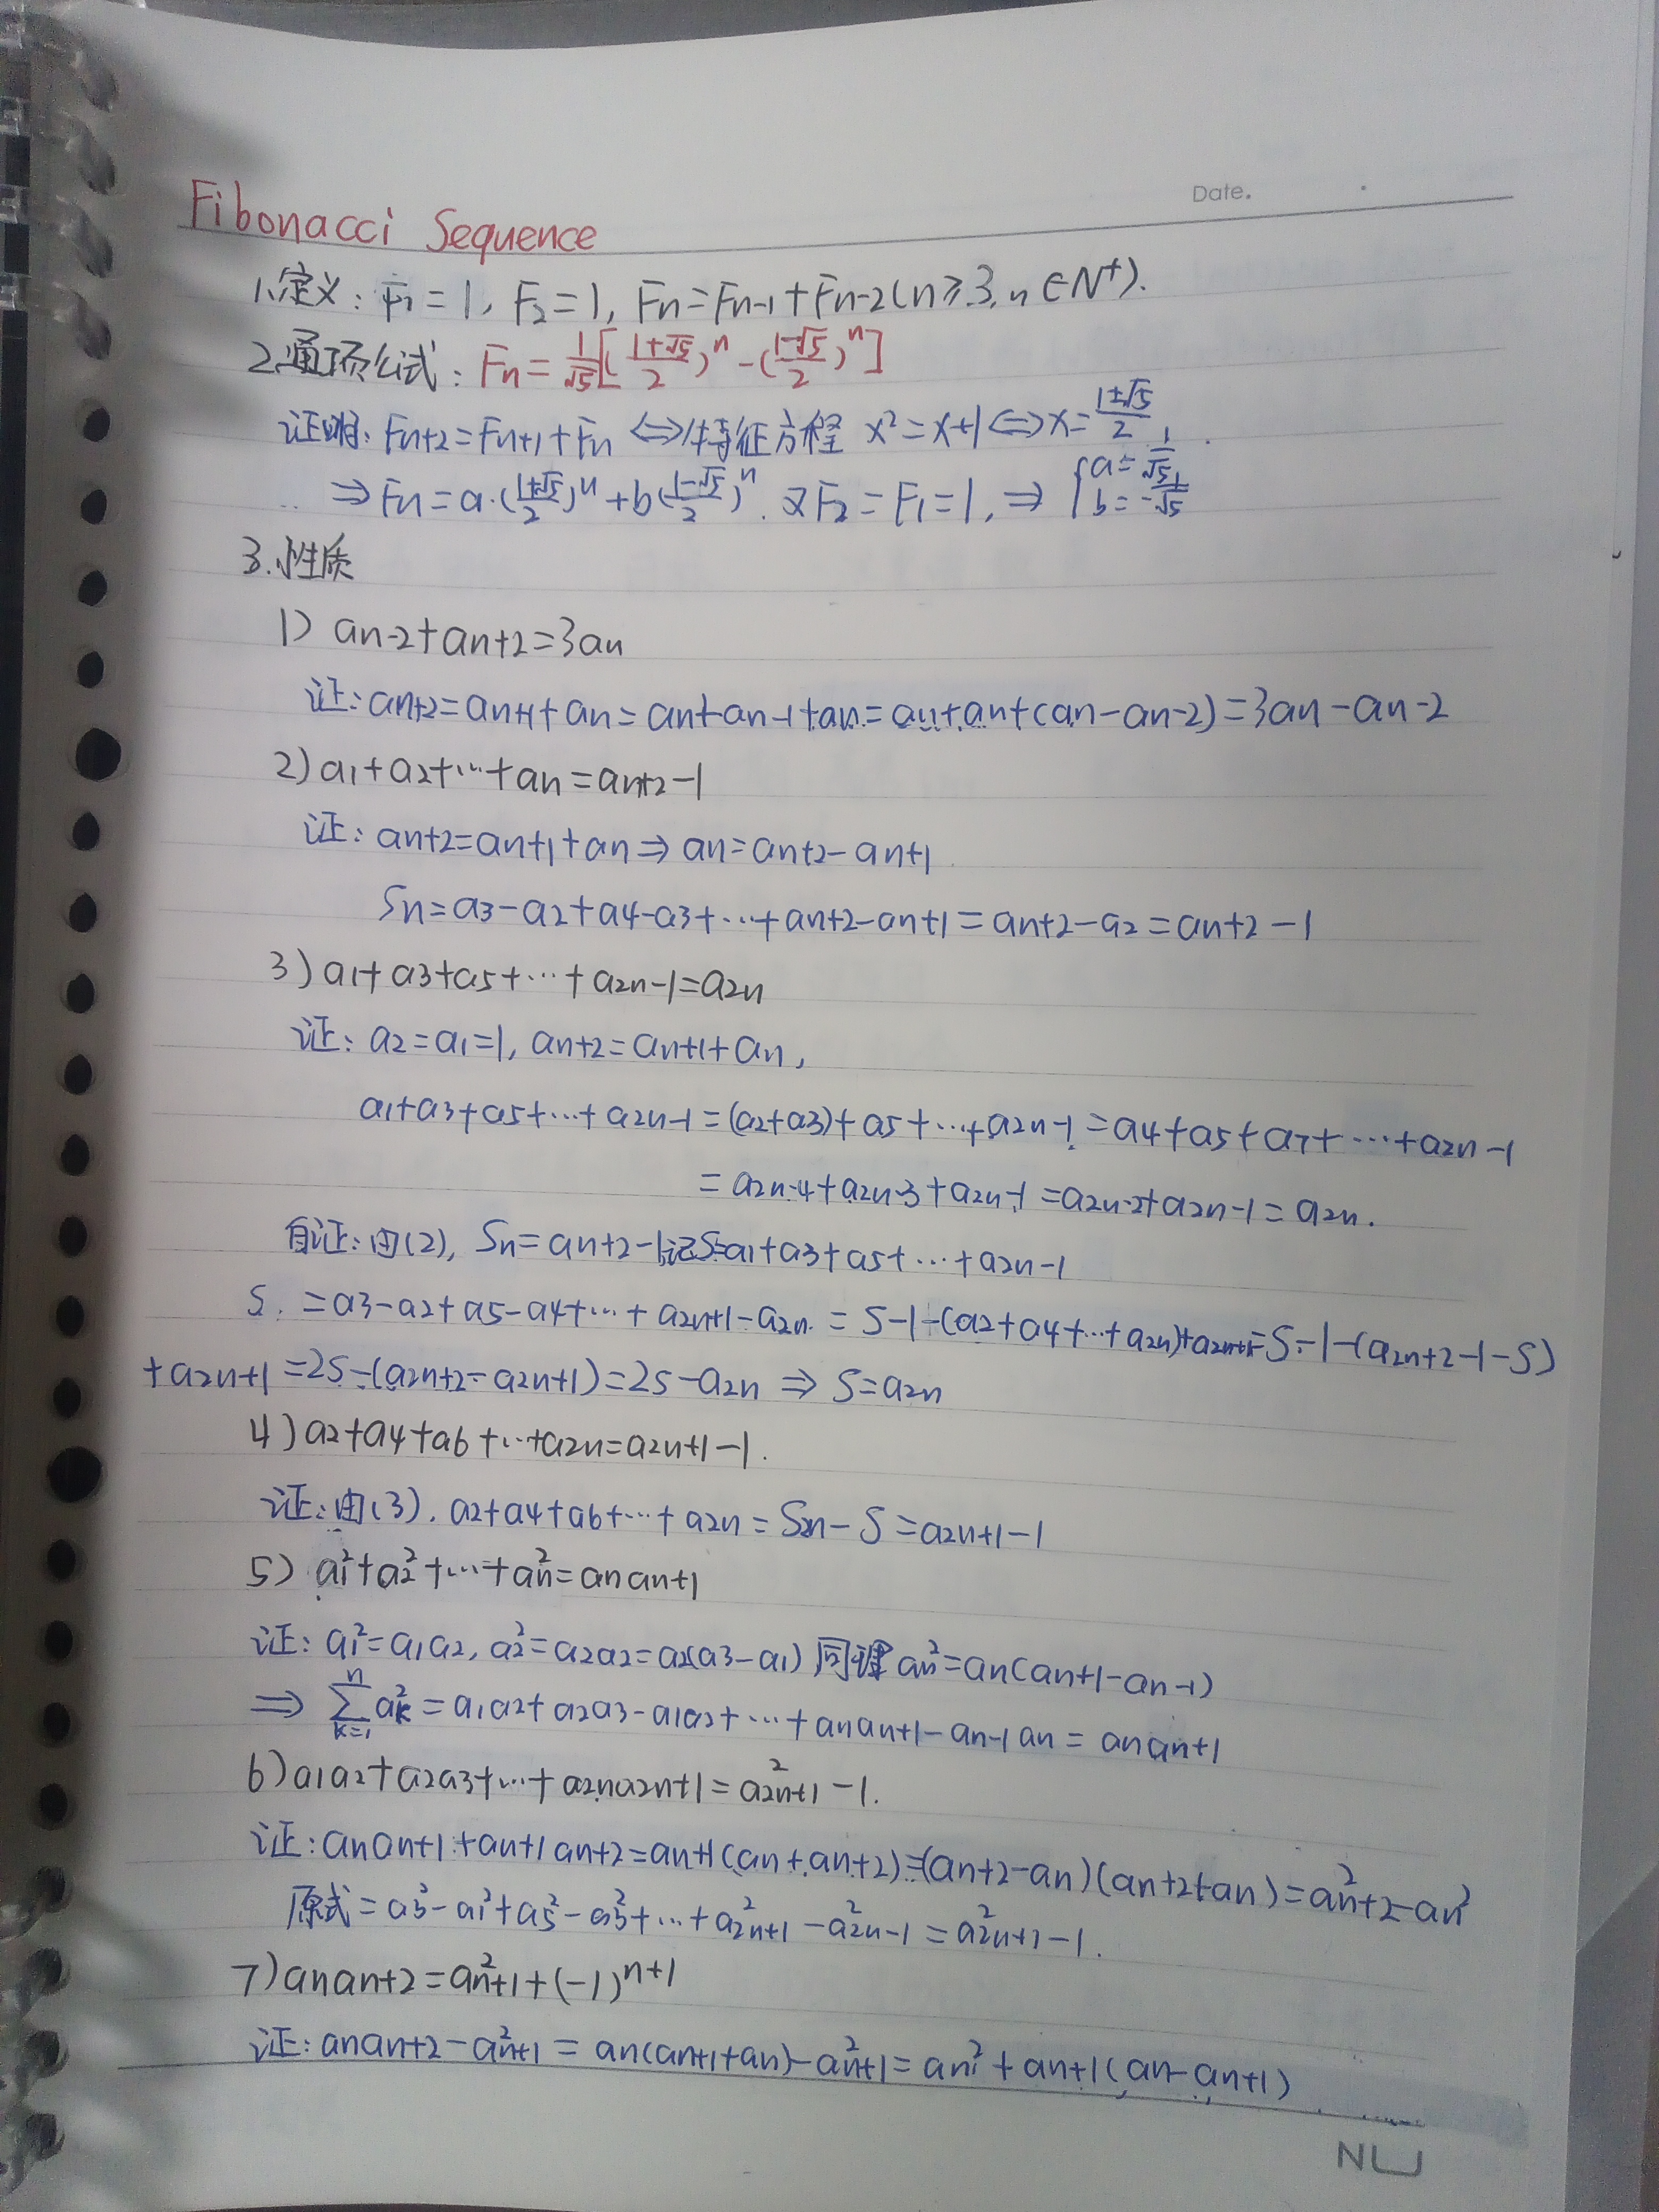 Date.
Fibonacci Sequence
1.定义: F₁=1, F₂=1, Fn=Fn-1+Fn-2(n≥3, n∈N⁺).
2.通项公式: Fn=1/√5[((1+√5)/2)ⁿ-((1-√5)/2)ⁿ]
证明: Fn+2=Fn+1+Fn ⇔特征方程 x²=x+1⇔x=(1±√5)/2.
⇒Fn=a·((1+√5)/2)ⁿ+b((1-√5)/2)ⁿ. 又F₂=F₁=1, ⇒ {a=1/√5 b=-1/√5
3.性质
1) an-2+an+2=3an
证: an+2=an+1+an=an+an-1+an=an+an+(an-an-2)=3an-an-2
2) a1+a2+…+an=an+2-1
证: an+2=an+1+an⇒an=an+2-an+1
Sn=a3-a2+a4-a3+…+an+2-an+1=an+2-a2=an+2-1
3) a1+a3+a5+…+a2n-1=a2n
证: a2=a1=1, an+2=an+1+an,
a1+a3+a5+…+a2n-1=(a2+a3)+a5+…+a2n-1=a4+a5+a7+…+a2n-1
=a2n-4+a2n-3+a2n-1=a2n-2+a2n-1=a2n.
自证: 由(2), Sn=an+2-1,记S=a1+a3+a5+…+a2n-1
S.=a3-a2+a5-a4+…+a2n+1-a2n.=S-1-(a2+a4+…+a2n)+a2n+1=S-1-(a2n+2-1-S)
+a2n+1=2S-(a2n+2-a2n+1)=2S-a2n⇒S=a2n
4) a2+a4+a6+…+a2n=a2n+1-1.
证: 由(3). a2+a4+a6+…+a2n=S2n-S=a2n+1-1
5) a1²+a2²+…+an²=anan+1
证: a1²=a1a2, a2²=a2a2=a2(a3-a1) 同理an²=an(an+1-an-1)
⇒ ∑ⁿₖ₌₁ak²=a1a2+a2a3-a1a2+…+anan+1-an-1an=anan+1
6) a1a2+a2a3+…+a2na2n+1=a²2n+1-1.
证: anan+1+an+1an+2=an+1(an+an+2)=(an+2-an)(an+2+an)=a²n+2-an²
原式=a3²-a1²+a5²-a3²+…+a²2n+1-a²2n-1=a²2n+1-1.
7) anan+2=a²n+1+(-1)ⁿ⁺¹
证: anan+2-a²n+1=an(an+1+an)-a²n+1=an²+an+1(an-an+1)